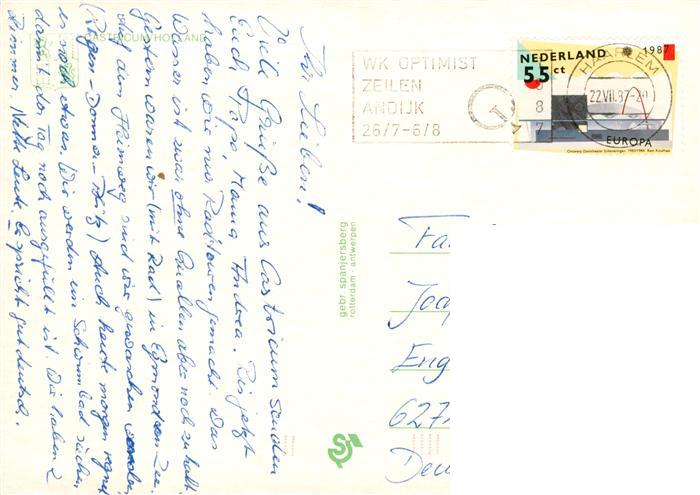 CASTRICUM HOLLAND
Ihr Lieben!
Viele Grüße aus Castricum senden
Euch Papa, Mama, Andrea. Bis jetzt
haben wir nur Radtouren gemacht. Das
Wasser ist zwar ohne Quallen aber noch zu kalt.
Gestern waren wir (mit Rad) in Egmond an Zee.
Auf dem Heimweg sind wir gewaschen worden
(Regen-Donner-Blitz) Auch heute morgen regnet
es noch etwas. Wir werden ein Schwimmbad suchen
damit der Tag noch ausgefüllt ist. Wir haben 2
Zimmer. Nette Leute. Es spricht gut deutsch.
WK OPTIMIST
ZEILEN
ANDIJK
26/7-6/8
HAARLEM
22.VII.87-20
NEDERLAND
1987
55ct
EUROPA
gebr spanjersberg
rotterdam - antwerpen
Fa
Joa
Eng
627
Deu